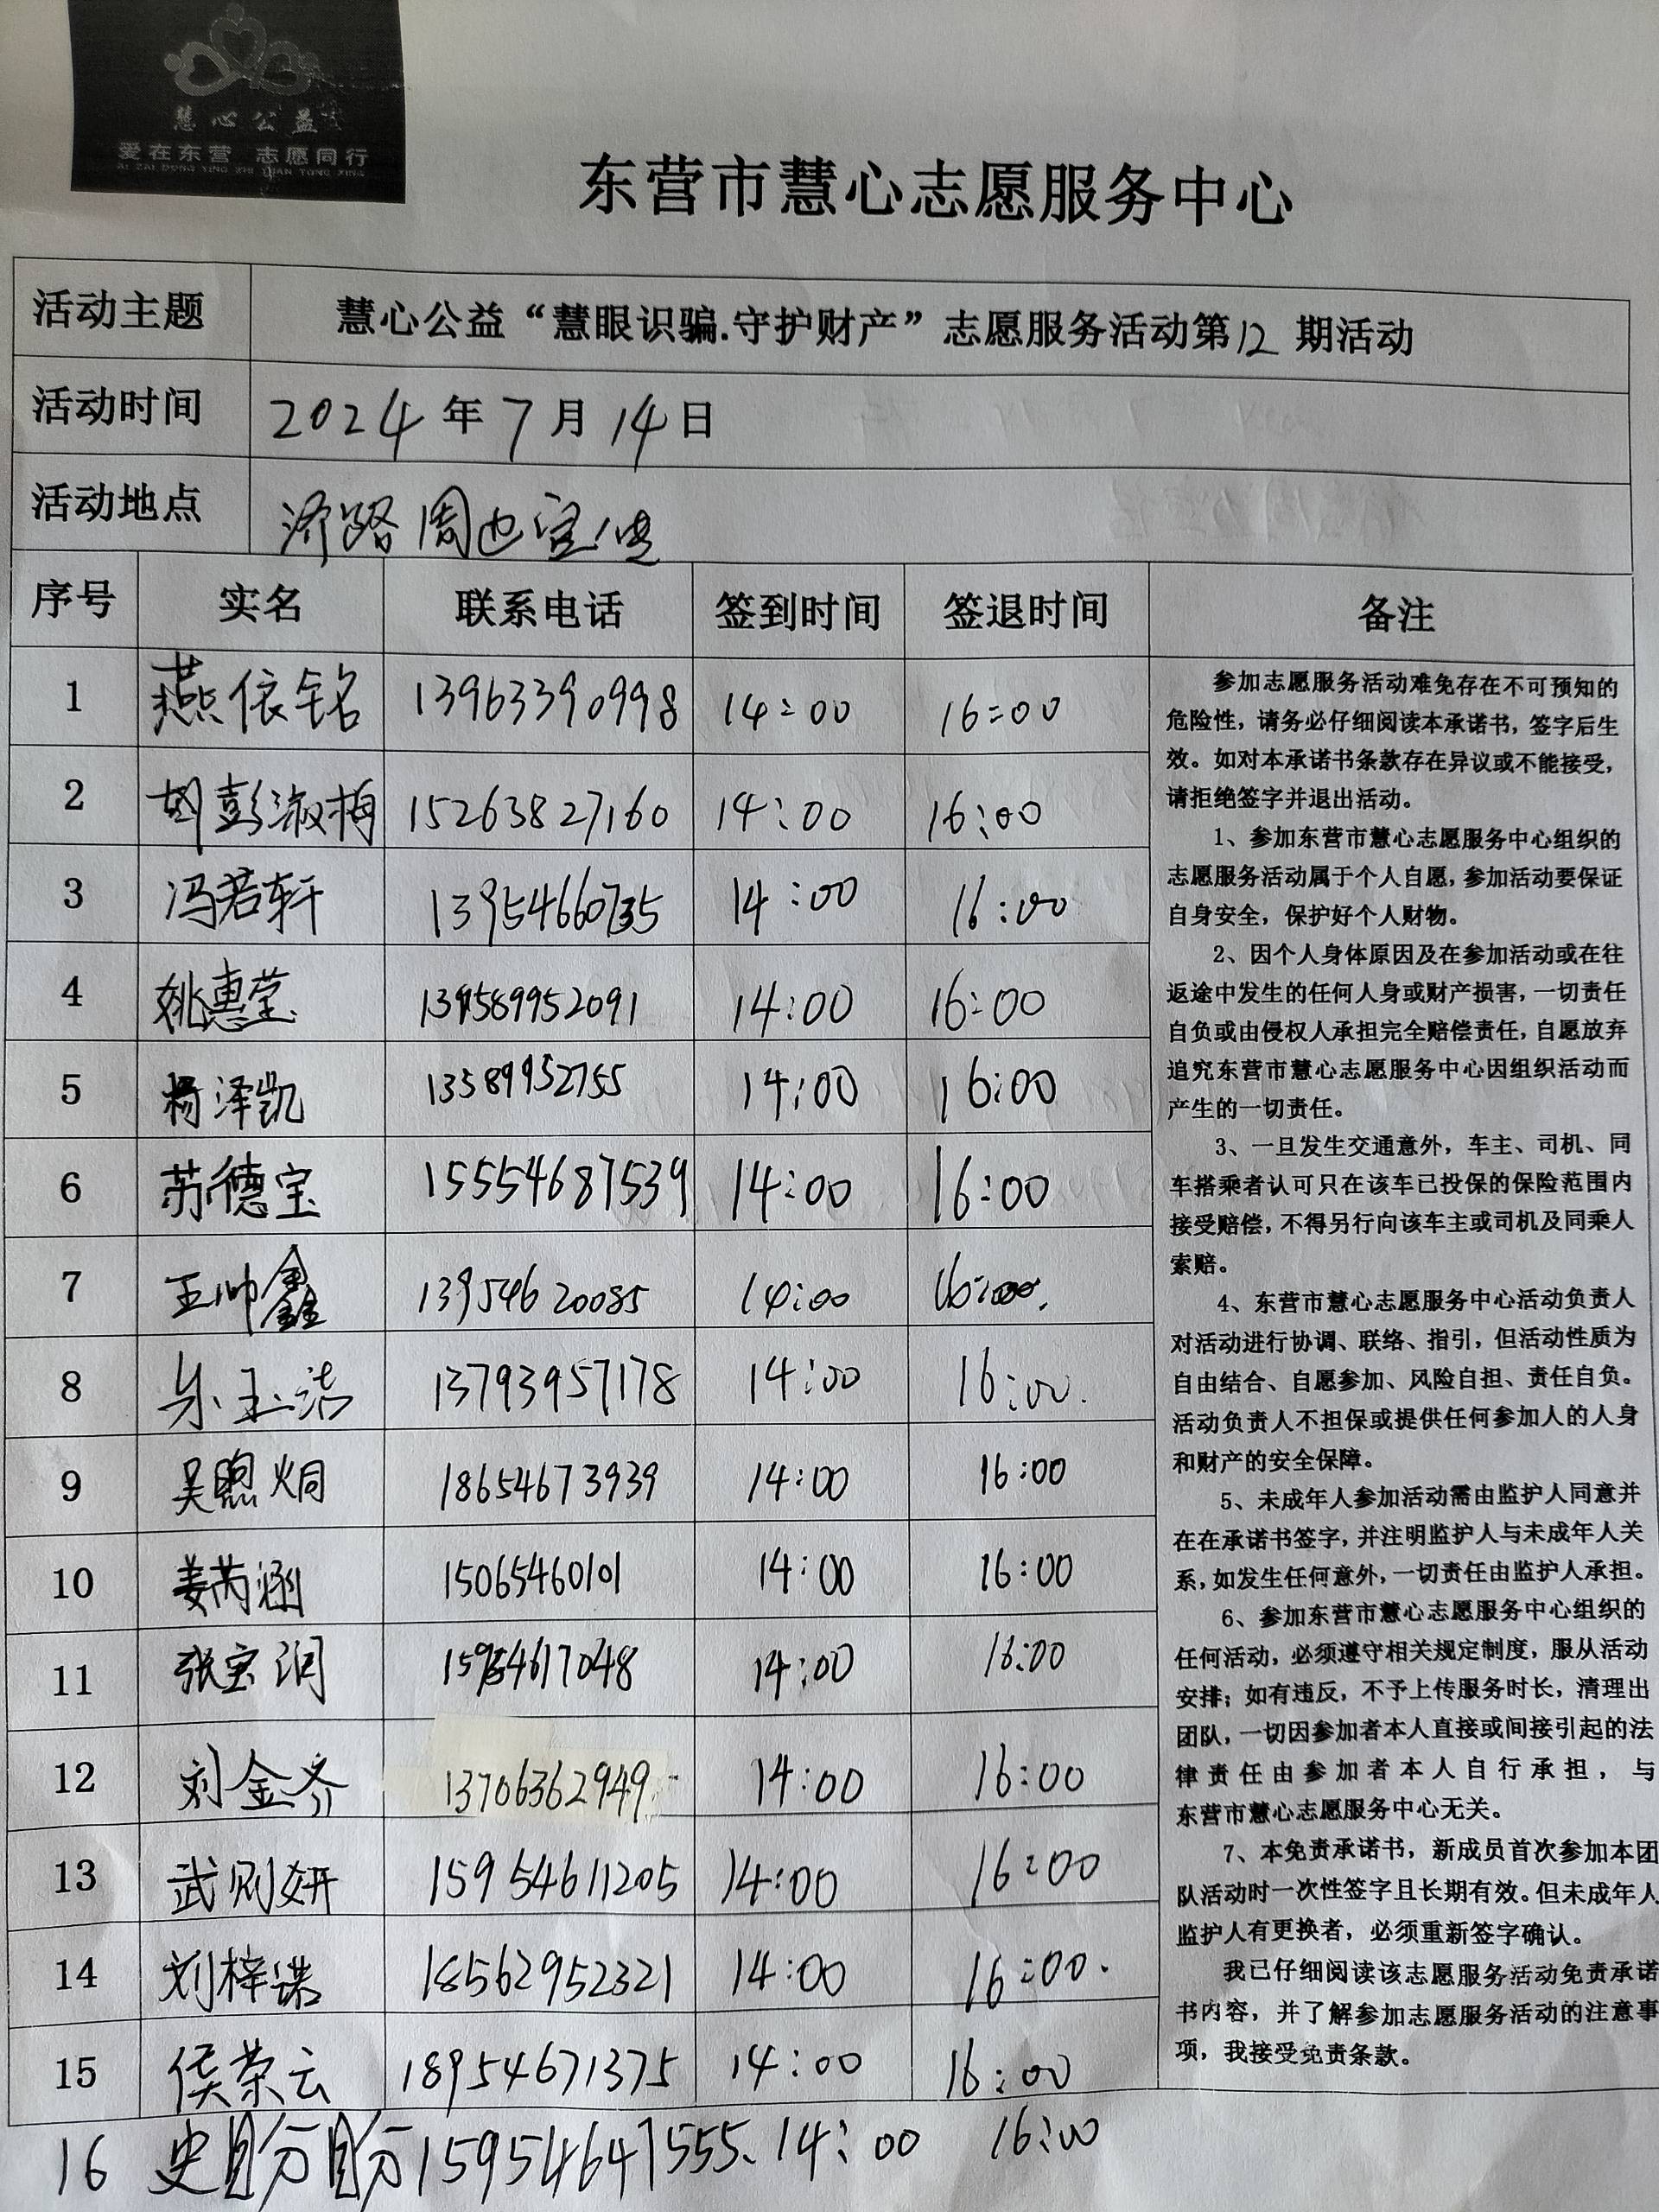 慧心公益
爱在东营 志愿同行
AI ZAI DONG YING ZHI YUAN TONG XING
东营市慧心志愿服务中心
活动主题 慧心公益“慧眼识骗.守护财产”志愿服务活动第12期活动
活动时间 2024年7月14日
活动地点 济路周边宣传
序号 实名 联系电话 签到时间 签退时间 备注
1 燕依铭 13963390998 14:00 16:00
2 胡彭淑梅 15263827160 14:00 16:00
3 冯若轩 13954660735 14:00 16:00
4 姚惠莹 14:00 16:00
5 杨泽凯 13589952755 14:00 16:00
6 苏德宝 15554687539 14:00 16:00
7 王帅鑫 13954620085 14:00 16:00
8 朱玉洁 13793957178 14:00 16:00
9 吴煦炯 18654673939 14:00 16:00
10 姜芮涵 15065460101 14:00 16:00
11 张宝润 15954617048 14:00 16:00
12 刘金齐 13706362949 14:00 16:00
13 武则妍 15954611205 14:00 16:00
14 刘梓诺 18562952321 14:00 16:00.
15 侯荣云 18954671375 14:00 16:00
16 史盼盼 15954647555、14:00 16:00
参加志愿服务活动难免存在不可预知的
危险性，请务必仔细阅读本承诺书，签字后生
效。如对本承诺书条款存在异议或不能接受，
请拒绝签字并退出活动。
1、参加东营市慧心志愿服务中心组织的
志愿服务活动属于个人自愿，参加活动要保证
自身安全，保护好个人财物。
2、因个人身体原因及在参加活动或在往
返途中发生的任何人身或财产损害，一切责任
自负或由侵权人承担完全赔偿责任，自愿放弃
追究东营市慧心志愿服务中心因组织活动而
产生的一切责任。
3、一旦发生交通意外，车主、司机、同
车搭乘者认可只在该车已投保的保险范围内
接受赔偿，不得另行向该车主或司机及同乘人
索赔。
4、东营市慧心志愿服务中心活动负责人
对活动进行协调、联络、指引，但活动性质为
自由结合、自愿参加、风险自担、责任自负。
活动负责人不担保或提供任何参加人的人身
和财产的安全保障。
5、未成年人参加活动需由监护人同意并
在在承诺书签字，并注明监护人与未成年人关
系，如发生任何意外，一切责任由监护人承担。
6、参加东营市慧心志愿服务中心组织的
任何活动，必须遵守相关规定制度，服从活动
安排；如有违反，不予上传服务时长，清理出
团队，一切因参加者本人直接或间接引起的法
律责任由参加者本人自行承担，与
东营市慧心志愿服务中心无关。
7、本免责承诺书，新成员首次参加本团
队活动时一次性签字且长期有效。但未成年人
监护人有更换者，必须重新签字确认。
我已仔细阅读该志愿服务活动免责承诺
书内容，并了解参加志愿服务活动的注意事
项，我接受免责条款。